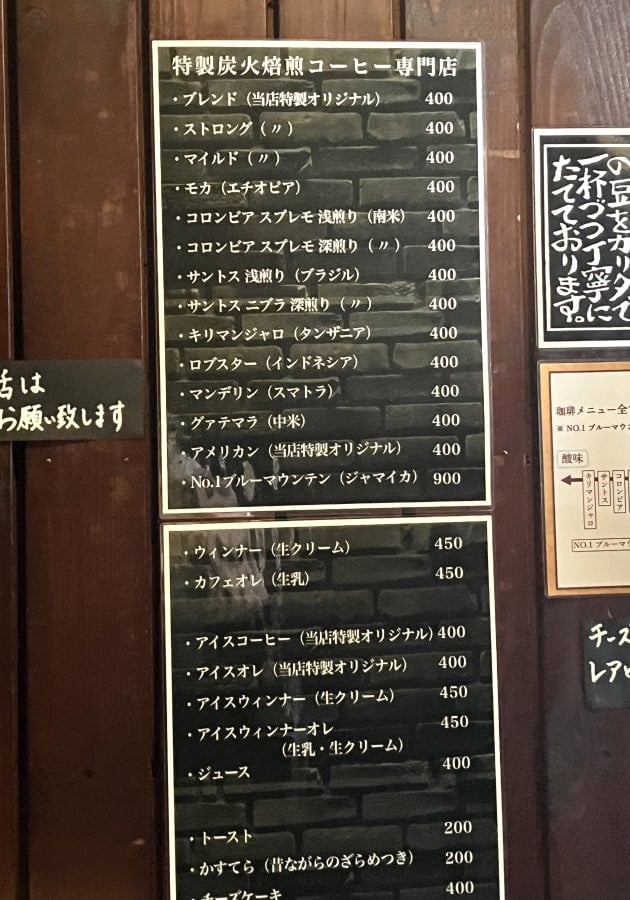 特製炭火焙煎コーヒー専門店
・ブレンド（当店特製オリジナル） 400
・ストロング（〃） 400
・マイルド（〃） 400
・モカ（エチオピア） 400
・コロンビア スプレモ 浅煎り（南米） 400
・コロンビア スプレモ 深煎り（〃） 400
・サントス 浅煎り（ブラジル） 400
・サントス ニブラ 深煎り（〃） 400
・キリマンジャロ（タンザニア） 400
・ロブスター（インドネシア） 400
・マンデリン（スマトラ） 400
・グァテマラ（中米） 400
・アメリカン（当店特製オリジナル） 400
・No.1ブルーマウンテン（ジャマイカ） 900
・ウィンナー（生クリーム） 450
・カフェオレ（生乳） 450
・アイスコーヒー（当店特製オリジナル） 400
・アイスオレ（当店特製オリジナル） 400
・アイスウィンナー（生クリーム） 450
・アイスウィンナーオレ 450
（生乳・生クリーム）
・ジュース 400
・トースト 200
・かすてら（昔ながらのざらめつき） 200
・チーズケーキ 400
は
お願い致します
一杯づつ丁寧に
たてております。
珈琲メニュー全
※ NO.1 ブルーマウ
酸味
キリマンジャロ
サントス
コロンビア
NO.1 ブルーマウ
チーズ
レア